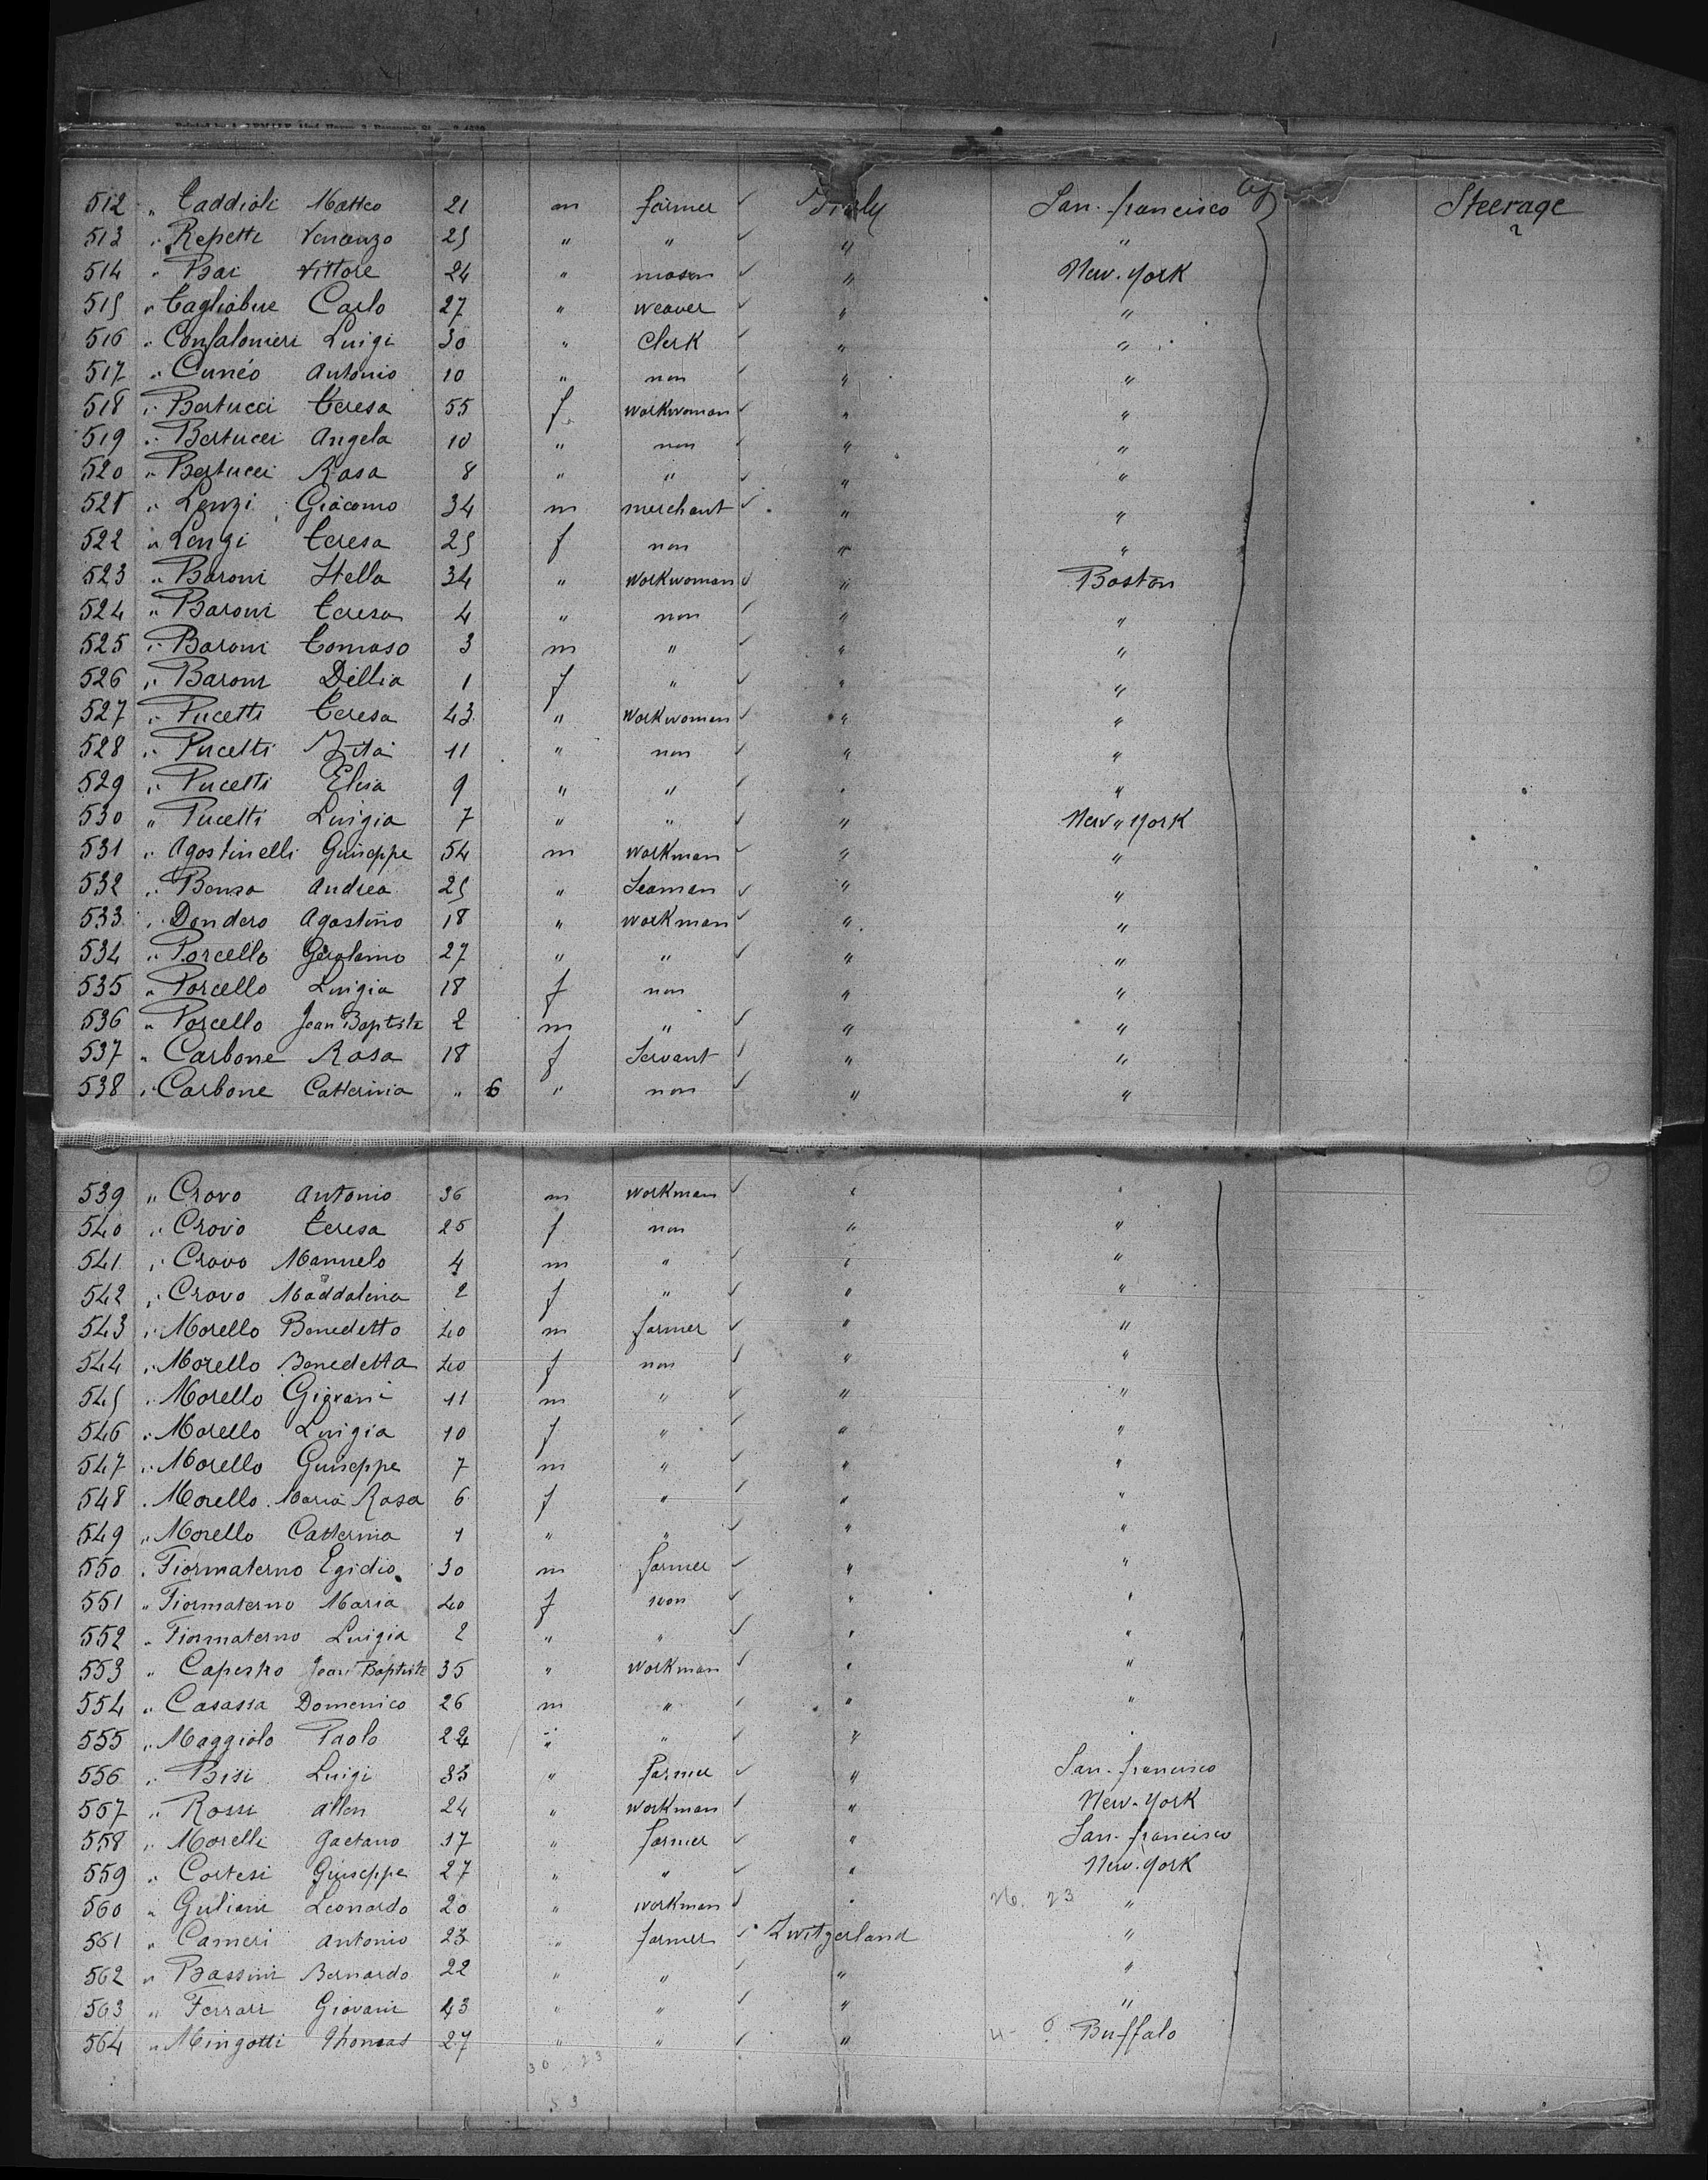 512 " Taddioli Matteo 21 m farmer ✓ Italy San-francisco Steerage
513 " Repetti Venanzo 25 " " ✓ " "
514 " Bar Vittore 24 " mason ✓ " New-York
515 " Tagliabue Carlo 27 " weaver ✓ " "
516 " Confalonieri Luigi 30 " Clerk ✓ " "
517 " Cunéo Antonio 10 " non ✓ " "
518 " Bertucci Teresa 55 f workwoman ✓ " "
519 " Bertucci Angela 10 " non ✓ " "
520 " Bertucci Rosa 8 " " ✓ " "
521 " Lenzi Giacomo 34 m merchant ✓ " "
522 " Lenzi Teresa 25 f non " "
523 " Baroni Stella 34 " workwoman ✓ " Boston
524 " Baroni Teresa 4 " non ✓ " "
525 " Baroni Tomaso 3 m " ✓ " "
526 " Baroni Dillia 1 f " ✓ " "
527 " Pucetti Teresa 43 " workwoman ✓ " "
528 " Pucetti Zita 11 " non ✓ " "
529 " Pucetti Elisa 9 " " ✓ " "
530 " Pucetti Luigia 7 " " ✓ " New-York
531 " Agostinelli Guiseppe 54 m workman ✓ " "
532 " Bensa Andrea 25 " Seaman ✓ " "
533 " Dondero Agostino 18 " workman ✓ " "
534 " Porcello Gerolamo 27 " " ✓ " "
535 " Porcello Luigia 18 f non " "
536 " Porcello Jean Baptiste 2 m " ✓ " "
537 " Carbone Rosa 18 f Servant ✓ " "
538 " Carbone Catterina " 6 " non ✓ " "
539 " Crovo Antonio 36 m workman ✓ " "
540 " Crovo Teresa 25 f non " "
541 " Crovo Mannelo 4 m " ✓ " "
542 " Crovo Maddalina 2 f " ✓ " "
543 " Morello Benedetto 40 m farmer ✓ " "
544 " Morello Benedetta 40 f non ✓ " "
545 " Morello Giovani 11 m " ✓ " "
546 " Morello Luigia 10 f " ✓ " "
547 " Morello Guiseppe 7 m " ✓ " "
548 " Morello Maria Rosa 6 f " ✓ " "
549 " Morello Catterina 1 " " ✓ " "
550 " Fiormaterno Egidio 30 m farmer ✓ " "
551 " Fiormaterno Maria 40 f non ✓ " "
552 " Fiormaterno Luigia 2 " " ✓ " "
553 " Capestro Jean Baptiste 35 " workman ✓ " "
554 " Casassa Domenico 26 m " ✓ " "
555 " Maggiolo Paolo 22 " " ✓ " "
556 " Bisi Luigi 33 " farmer ✓ " San-francisco
557 " Rossi allen 24 " workman ✓ " New-York
558 " Morelli Gaetano 37 " farmer ✓ " San-francisco
559 " Cortesi Giuseppe 27 " " ✓ " New-York
560 " Guliani Leonardo 20 " workman ✓ " "
561 " Cameri Antonio 23 " farmer ✓ Zwitzerland "
562 " Bassini Bernardo 22 " " ✓ " "
563 " Ferrari Giovani 43 " " ✓ " "
564 " Mingotti Thomas 27 " " ✓ " Buffalo
30 23
53